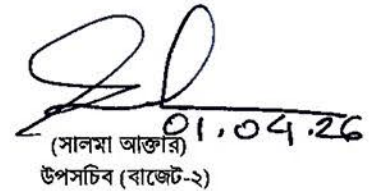 01.04.26
(সালমা আক্তার)
উপসচিব (বাজেট-২)